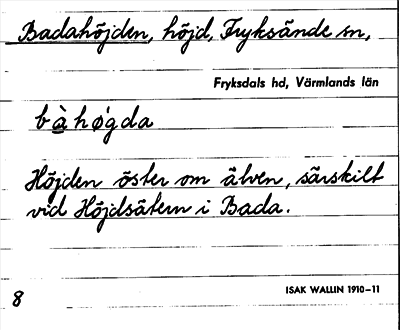 Badahöjden, höjd, Fryksände sn,
Fryksdals hd, Värmlands län
bàhǿgda
Höjden öster om älven, särskilt
vid Höjdsätern i Bada.
8
ISAK WALLIN 1910–11